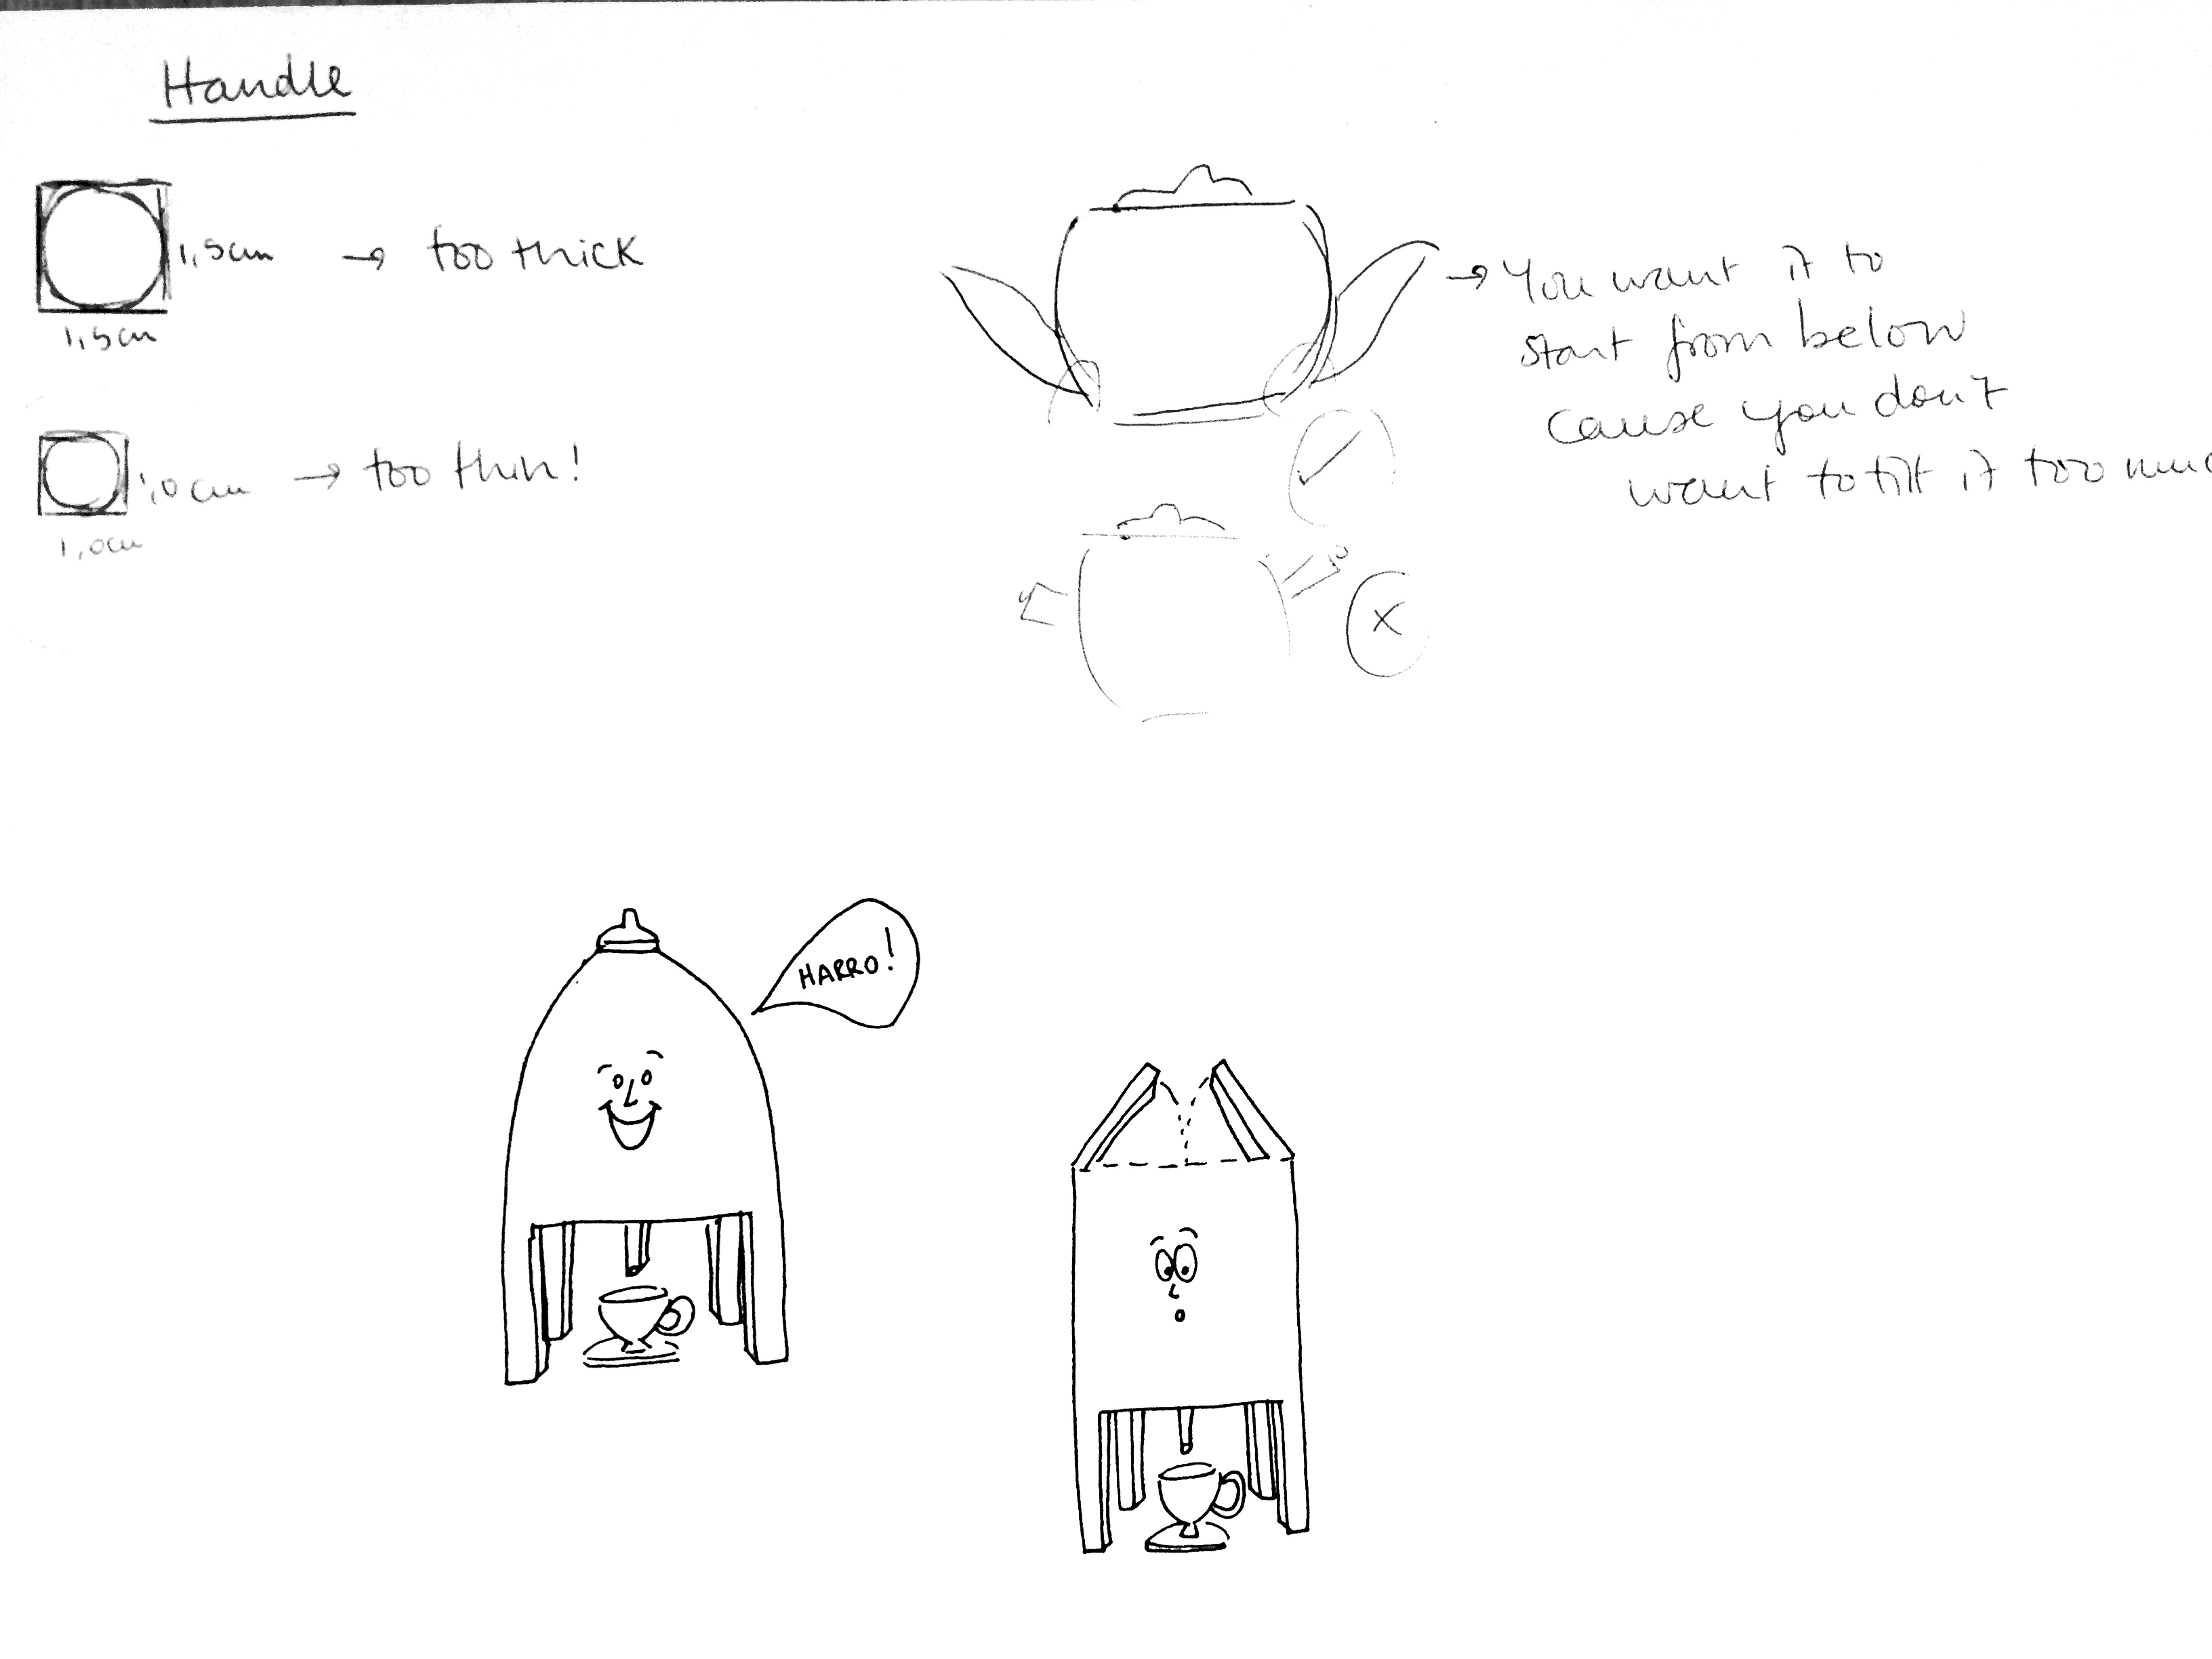 Handle
1,5cm → too thick
1,5cm
1,0cm → too thin!
1,0cm
→ You want it to
start from below
cause you don't
want to tilt it too
HARRO!